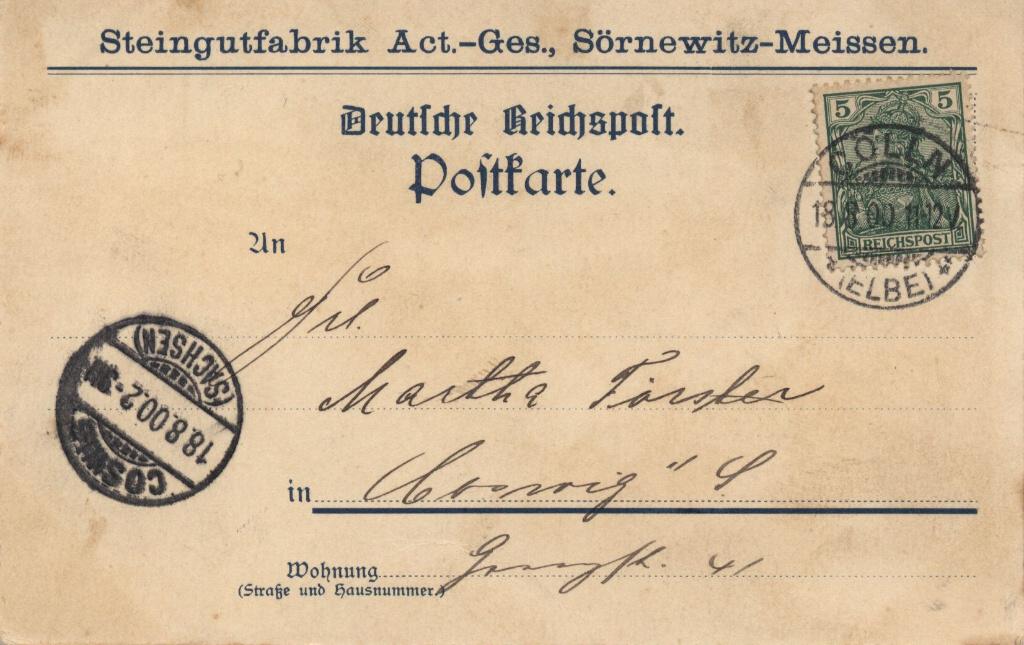 Steingutfabrik Act.-Ges., Sörnewitz-Meissen.
Deutsche Reichspost.
Postkarte.
5 5
REICHSPOST
CÖLLN
18.8.00.11-12V
(ELBE)
An
Frl.
Martha Förster
in Coswig i/S
Wohnung 41
(Straße und Hausnummer.)
COSWIG
18.8.00.2-3N
(SACHSEN)